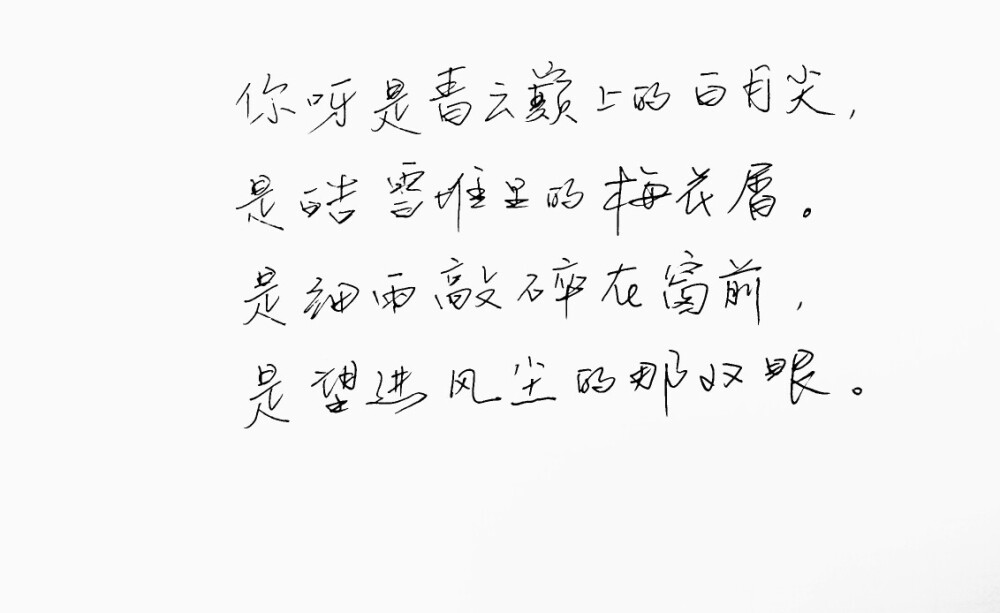 你呀是青云巅上的白月尖，
是皓雪堆里的梅花層。
是细雨敲碎在窗前，
是望进风尘的那双眼。